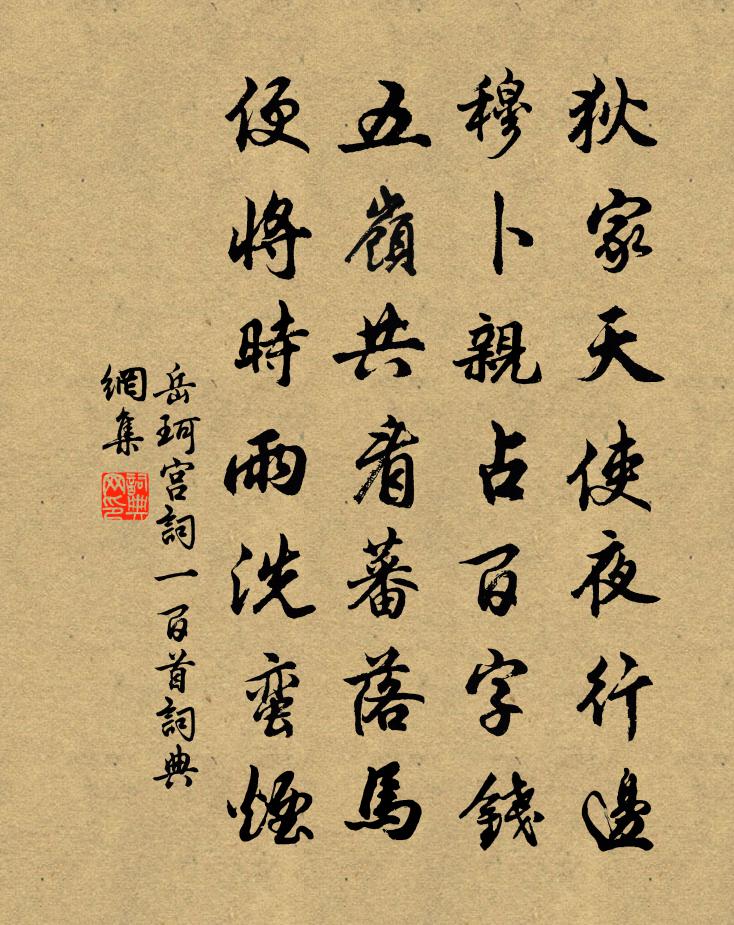 狄家天使夜行邊
穆卜親占百字錢
五嶺共看蕃落馬
便將時雨洗蠻煙
岳珂宮詞一百首詞典
網集
詞典
网印